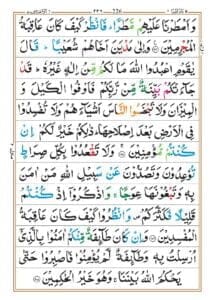 وَاَمْطَرْنَا عَلَيْهِمْ مَّطَرًا ؕ فَانْظُرْ كَيْفَ كَانَ عَاقِبَةُ
الْمُجْرِمِيْنَ وَاِلٰى مَدْيَنَ اَخَاهُمْ شُعَيْبًا ؕ قَالَ
يٰقَوْمِ اعْبُدُوا اللّٰهَ مَا لَكُمْ مِّنْ اِلٰهٍ غَيْرُهٗ ؕ قَدْ
جَآءَتْكُمْ بَيِّنَةٌ مِّنْ رَّبِّكُمْ فَاَوْفُوا الْكَيْلَ
وَالْمِيْزَانَ وَلَا تَبْخَسُوا النَّاسَ اَشْيَآءَهُمْ وَلَا تُفْسِدُوْا
فِى الْاَرْضِ بَعْدَ اِصْلَاحِهَا ؕ ذٰلِكُمْ خَيْرٌ لَّكُمْ اِنْ
كُنْتُمْ مُّؤْمِنِيْنَ وَلَا تَقْعُدُوْا بِكُلِّ صِرَاطٍ
تُوْعِدُوْنَ وَتَصُدُّوْنَ عَنْ سَبِيْلِ اللّٰهِ مَنْ اٰمَنَ
بِهٖ وَتَبْغُوْنَهَا عِوَجًا ۚ وَاذْكُرُوْۤا اِذْ كُنْتُمْ
قَلِيْلًا فَكَثَّرَكُمْ وَانْظُرُوْا كَيْفَ كَانَ عَاقِبَةُ
الْمُفْسِدِيْنَ وَاِنْ كَانَ طَآئِفَةٌ مِّنْكُمْ اٰمَنُوْا بِالَّذِىْۤ
اُرْسِلْتُ بِهٖ وَطَآئِفَةٌ لَّمْ يُؤْمِنُوْا فَاصْبِرُوْا حَتّٰى
يَحْكُمَ اللّٰهُ بَيْنَنَا ۚ وَهُوَ خَيْرُ الْحٰكِمِيْنَ